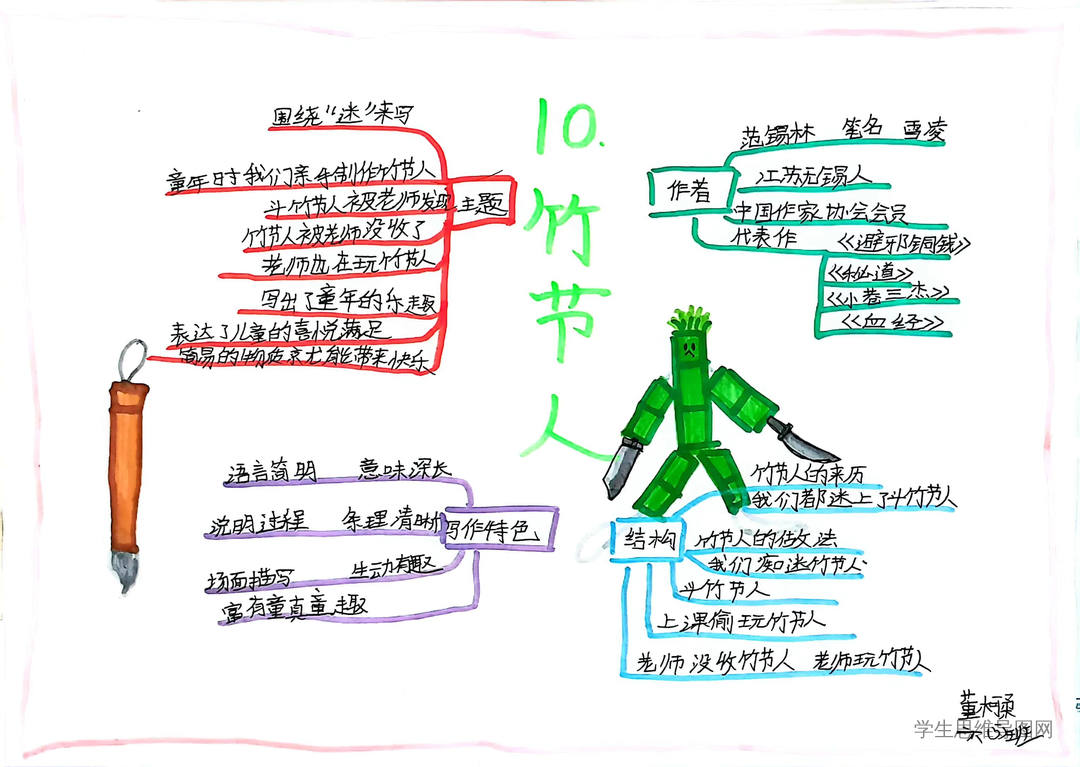 10.竹节人
围绕“迷”来写
童年时我们亲手制作竹节人
斗竹节人被老师发现
主题
竹节人被老师没收了
老师也在玩竹节人
写出了童年的乐趣
表达了儿童的喜悦满足
简易的物质条尤能带来快乐
范锡林 笔名 雪凌
作者
江苏无锡人
中国作家协会会员
代表作
《避邪铜钱》
《秘道》
《小巷三杰》
《血经》
语言简明 意味深长
说明过程 条理清晰
写作特色
场面描写 生动有趣
富有童真童趣
竹节人的来历
我们都迷上了斗竹节人
结构
竹节人的做法
我们痴迷竹节人
斗竹节人
上课偷玩竹节人
老师没收竹节人 老师玩竹节人
董柯柔
学生思维导图网